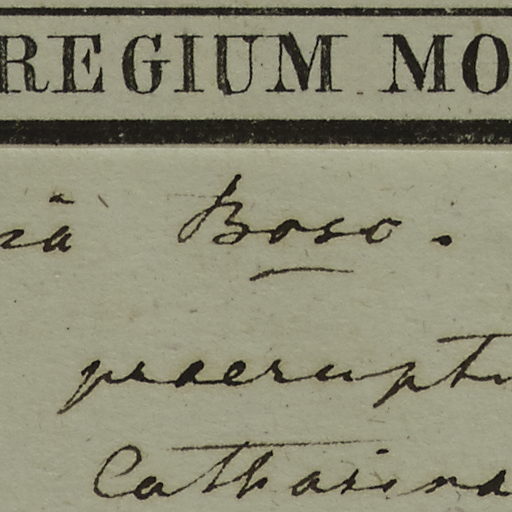 REGIUM MO
iâ Boso.
praeruptu
Catharina